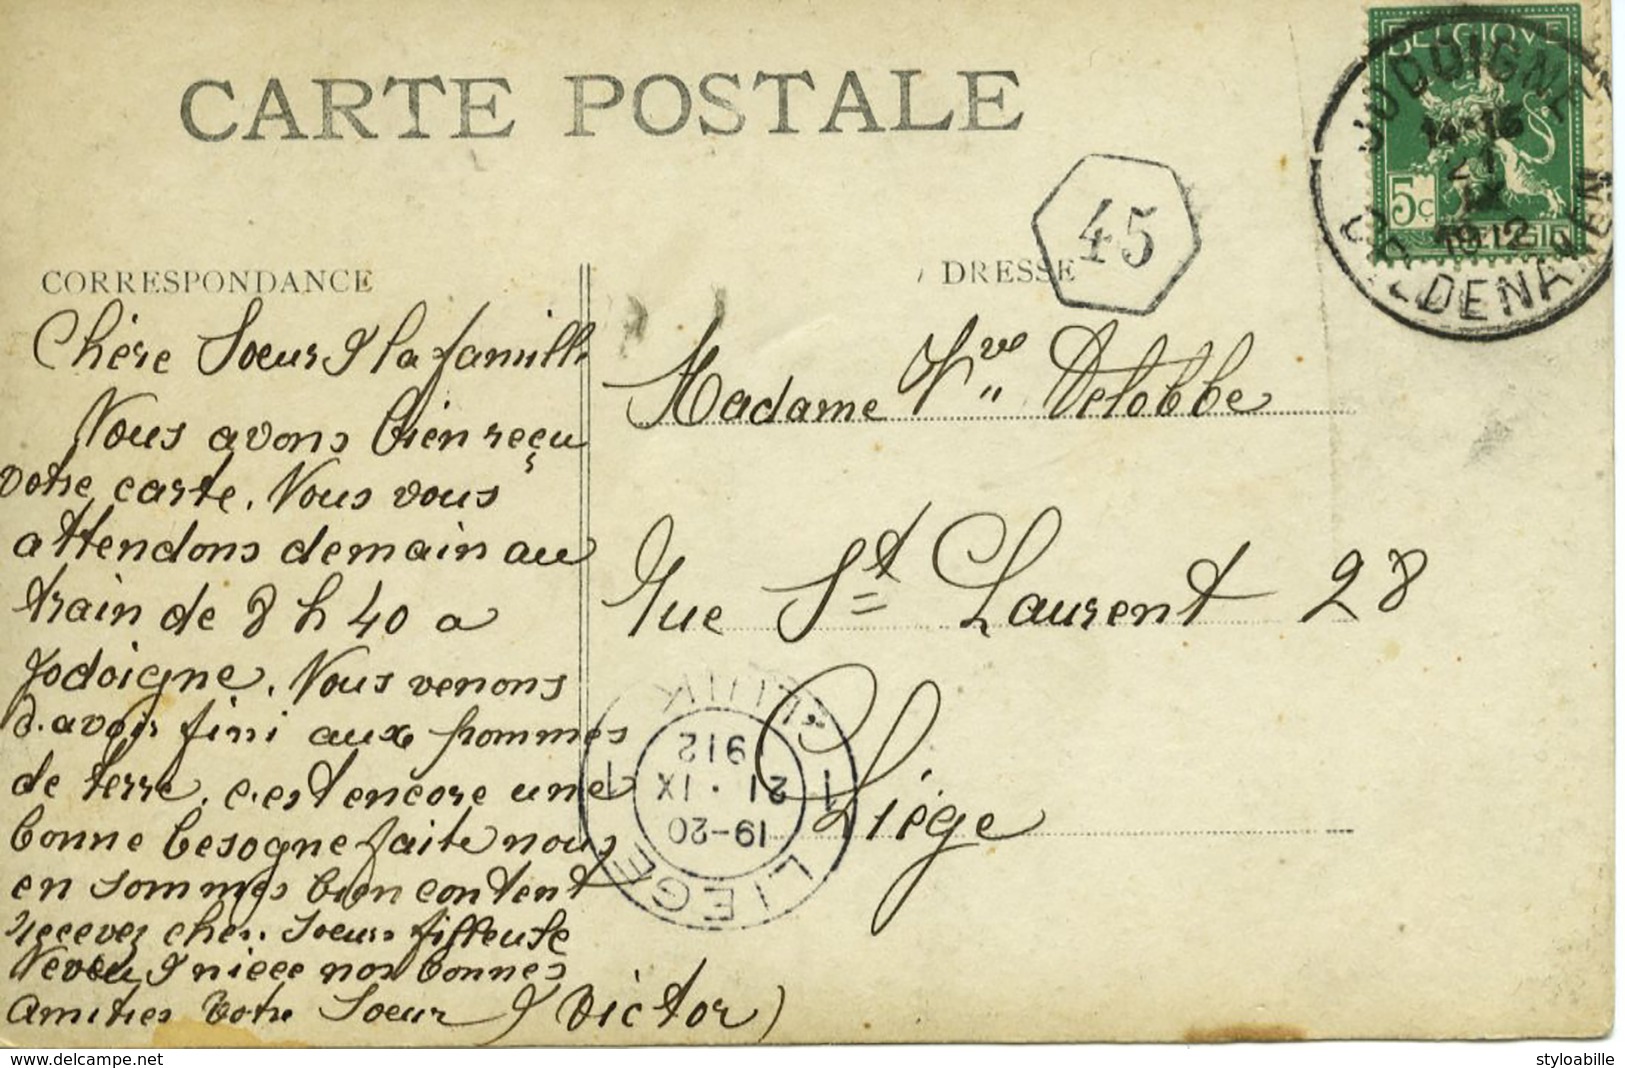 CARTE POSTALE
BELGIQUE
JODOIGNE
14-15
21
IX
1912
GELDENAKEN
5c
BELGIË
45
CORRESPONDANCE
DRESSE
Chère Soeur & la famille
Nous avons bien reçu
votre carte. Nous vous
attendons demain au
train de 8 h 40 a
Jodoigne. Nous venons
d.avoir fini aux pommes
de terre. c.est encore une
bonne besogne faite nous
en sommes bien content
recevez cher. Soeur filleule
Neveu & niece nos bonnes
amities votre Soeur & Victor)
Madame Vve Delobbe
rue St Laurent 28
Liége
LUIK
1 1
912
21 · IX
19-20
LIEGE
delcampe.net
styloabille